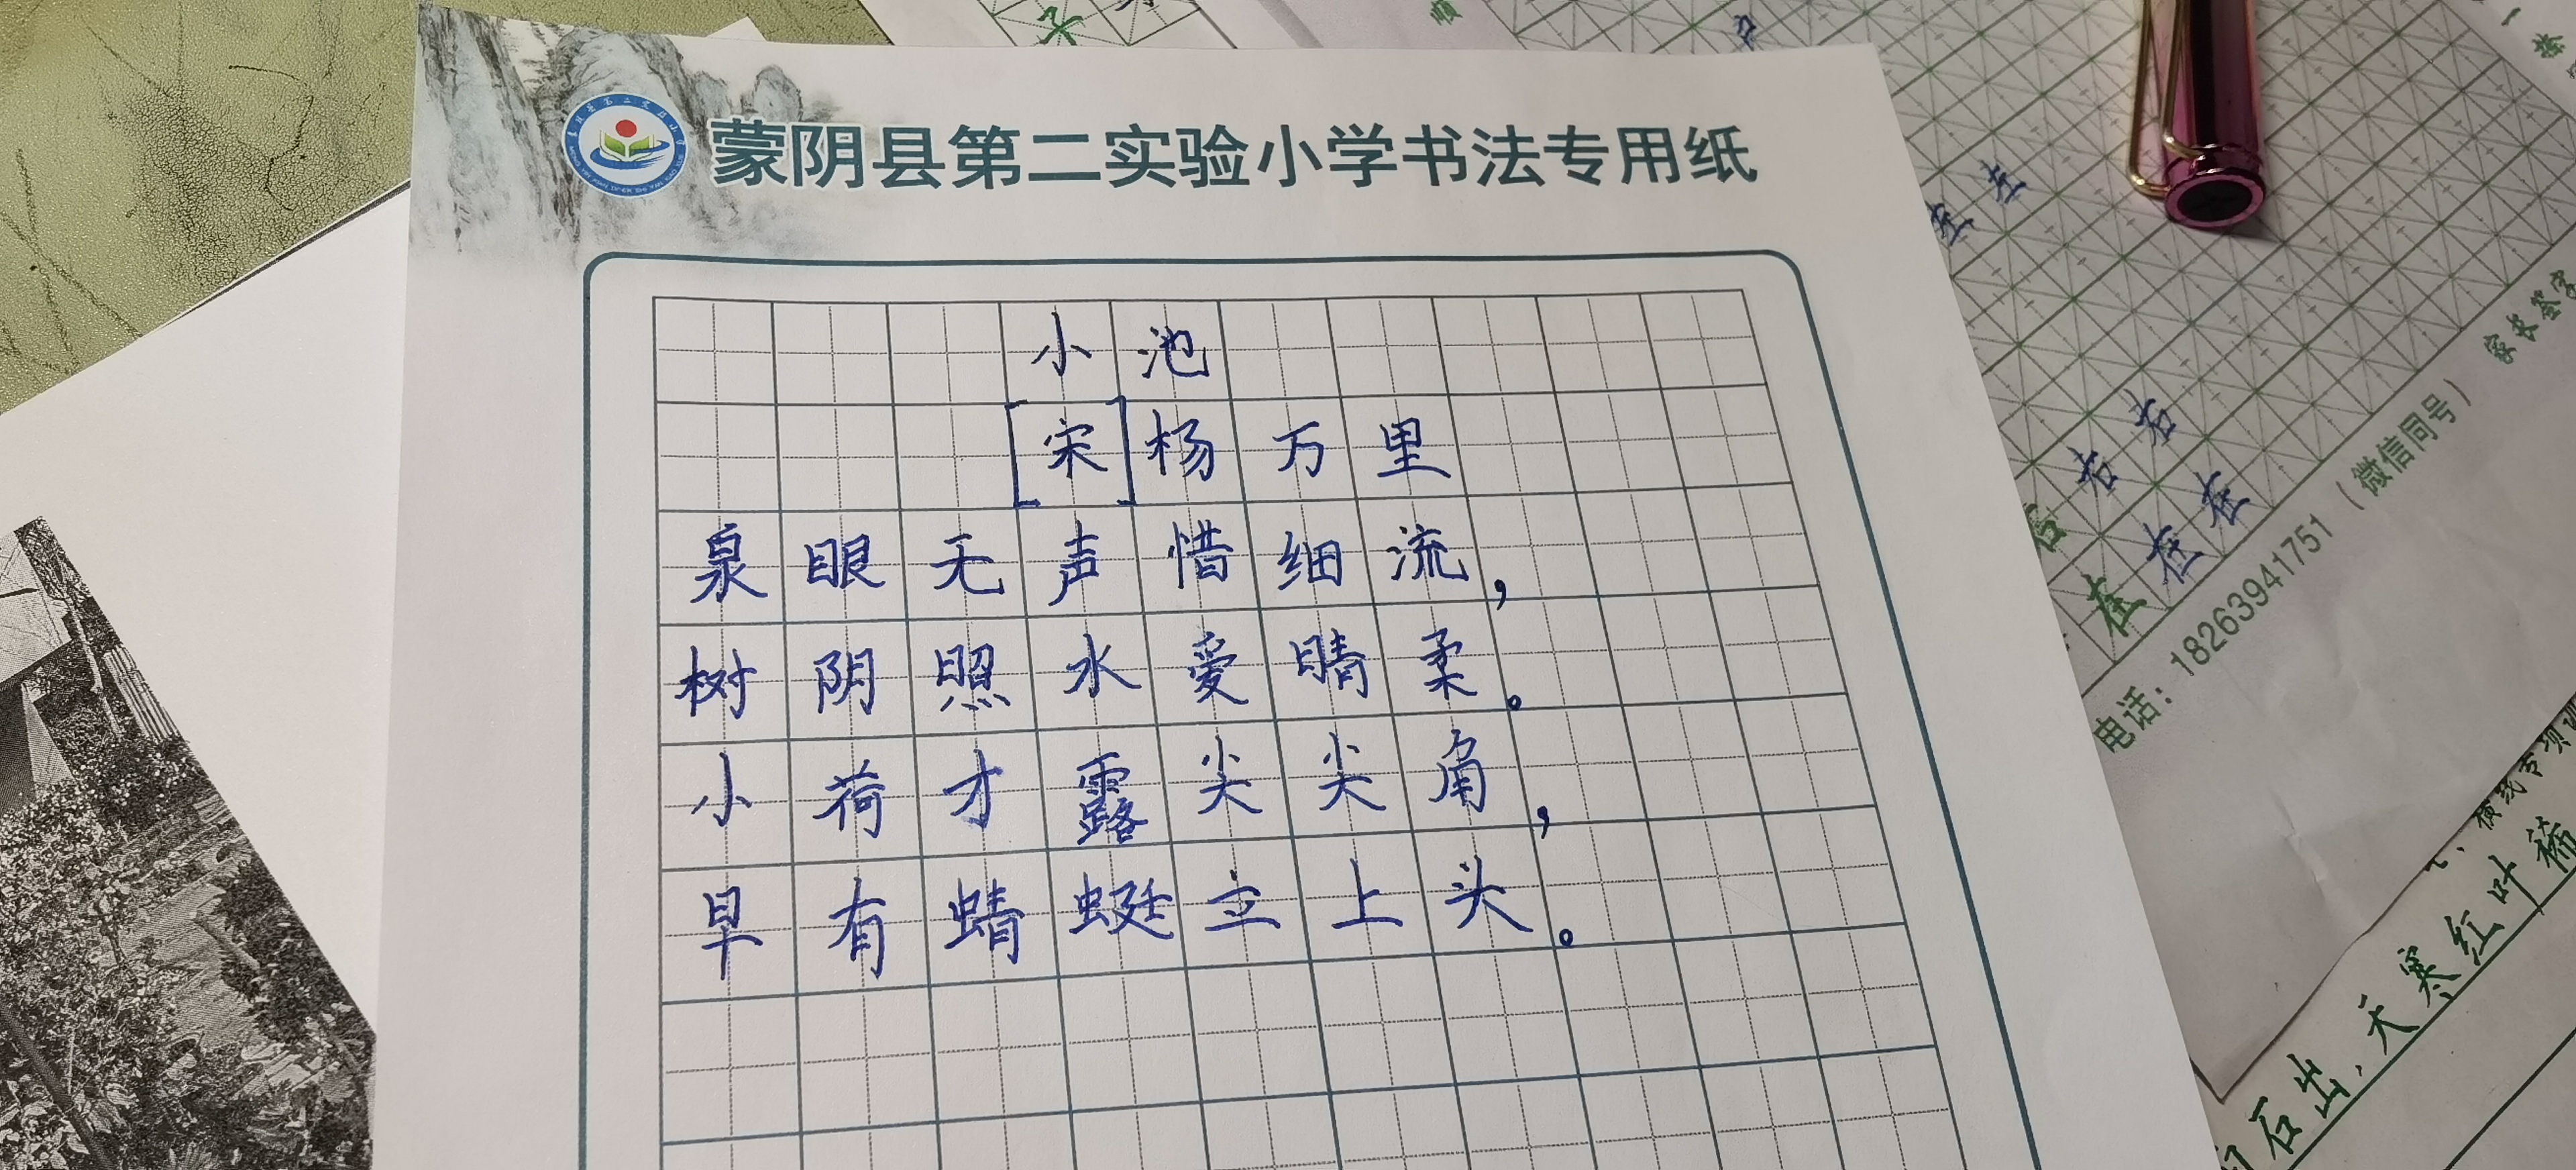 蒙阴县第二实验小学书法专用纸
小池
[宋]杨万里
泉眼无声惜细流，
树阴照水爱晴柔。
小荷才露尖尖角，
早有蜻蜓立上头。
在 在
右 右
在 在 在
电话：18263941751（微信同号） 家长签字
横线专项
石出，天寒红叶稀